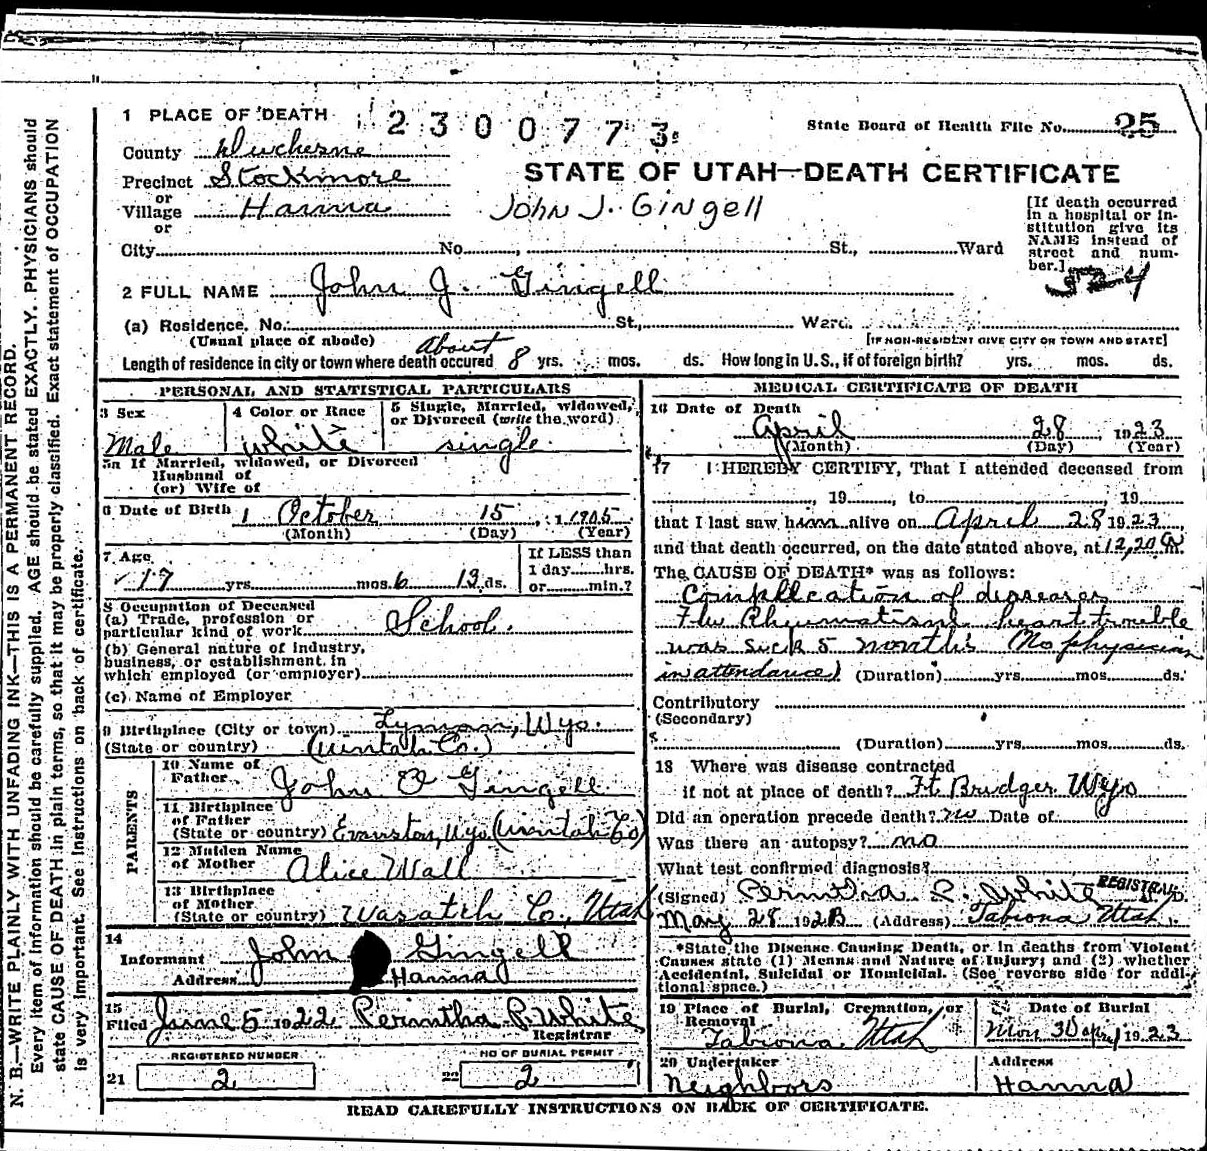 1 PLACE OF DEATH
2300773
State Board of Health File No. 25
County Duchesne
STATE OF UTAH—DEATH CERTIFICATE
Precinct Stockmore
or
Village Hanna
or
John J. Gingell
[If death occurred
in a hospital or in-
stitution give its
NAME instead of
street and num-
ber.]
City No. St., Ward
2 FULL NAME John J. Gingell
(a) Residence. No. St., Ward.
(Usual place of abode)
[IF NON-RESIDENT GIVE CITY OR TOWN AND STATE]
About
Length of residence in city or town where death occured 8 yrs. mos. ds. How long in U.S., if of foreign birth? yrs. mos. ds.
PERSONAL AND STATISTICAL PARTICULARS
3 Sex
Male
4 Color or Race
white
5 Single, Married, widowed,
or Divorced (write the word)
single
5a If Married, widowed, or Divorced
Husband of
(or) Wife of
6 Date of Birth October 15 1905
(Month) (Day) (Year)
7 Age
17 yrs. mos. 6 13 ds.
If LESS than
1 day hrs.
or min.?
8 Occupation of Deceased
(a) Trade, profession or
particular kind of work School.
(b) General nature of Industry,
business, or establishment in
which employed (or employer)
(c) Name of Employer
9 Birthplace (City or town) Lyman, Wyo.
(State or country) (Uintah Co.)
PARENTS
10 Name of
Father John O Gingell
11 Birthplace
of Father
(State or country) Evanston, Wyo (Uintah Co)
12 Maiden Name
of Mother Alice Wall
13 Birthplace
of Mother
(State or country) Wasatch Co., Utah
14
Informant John Gingell
Address Hanna
15
Filed June 5 1922 Perintha P. White
Registrar
REGISTERED NUMBER
21 2
NO OF BURIAL PERMIT
22 2
MEDICAL CERTIFICATE OF DEATH
16 Date of Death
April 28 1923
(Month) (Day) (Year)
17 I HEREBY CERTIFY, That I attended deceased from
, 19 , to , 19
that I last saw him alive on April 28 1923
and that death occurred, on the date stated above, at 12,20 a m.
The CAUSE OF DEATH* was as follows:
Complication of diseases
Flu Rheumatism heart trouble
was sick 5 months (No physician
in attendance) (Duration) yrs. mos. ds.
Contributory
(Secondary)
(Duration) yrs. mos. ds.
18 Where was disease contracted
if not at place of death? Ft Bridger Wyo
Did an operation precede death? no Date of
Was there an autopsy? no
What test confirmed diagnosis?
(Signed) Perintha P. White REGISTRAR
May 28 1923 (Address) Tabiona Utah
*State the Disease Causing Death, or in deaths from Violent
Causes state (1) Menns and Nature of Injury; and (2) whether
Accidental, Suicidal or Homicidal. (See reverse side for addi-
tional space.)
19 Place of Burial, Cremation, or
Removal
Tabiona Utah
Date of Burial
Mon 30 April 1923
20 Undertaker
Neighbors
Address
Hanna
READ CAREFULLY INSTRUCTIONS ON BACK OF CERTIFICATE.
N. B.—WRITE PLAINLY WITH UNFADING INK—THIS IS A PERMANENT RECORD.
Every item of information should be carefully supplied. AGE should be stated EXACTLY. PHYSICIANS should
state CAUSE OF DEATH in plain terms, so that it may be properly classified. Exact statement of OCCUPATION
is very important. See instructions on back of certificate.